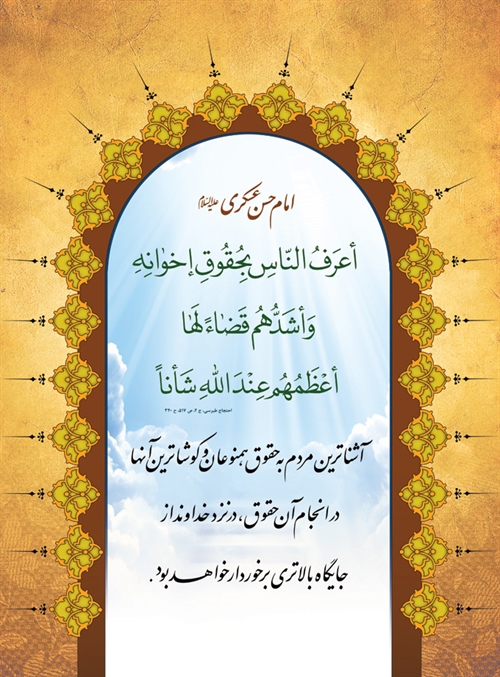 امام حسن عسکری علیه‌السلام
أعرَفُ النّاسِ بِحُقُوقِ إخوٰانِهِ
وَأشَدُّهُم قَضٰاءً لَهٰا
أعْظَمُهُم عِنْدَ اللهِ شَأناً
احتجاج طبرسی، ج ۲، ص ۵۱۷، ح ۳۴۰
آشناترین مردم به حقوق همنوعان و کوشاترین آنها
در انجام آن حقوق، در نزد خداوند از
جایگاه بالاتری برخوردار خواهد بود.